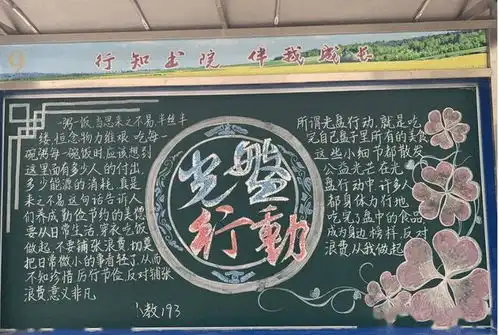 9
行知书院 伴我成长
一粥一饭,当思来之不易,半丝半
缕,恒念物力维艰。吃每一
碗粥每一碗饭时,应该想到
这里面有多少人的付出,
多少能源的消耗,真是
来之不易这句话告诉人
们养成勤俭节约的美德
要从日常生活,穿衣吃饭
做起,不要铺张浪费,切莫
把日常微小的事看轻了,从而
不知珍惜厉行节俭,反对铺张
浪费意义非凡
光盤
行動
所谓光盘行动,就是吃
完自己盘子里所有的美食
这些小细节都散发
公益光芒在光
盘行动中许多人
都身体力行地
吃完了盘中的食品
成为身边榜样,反对
浪费从我做起
小教193